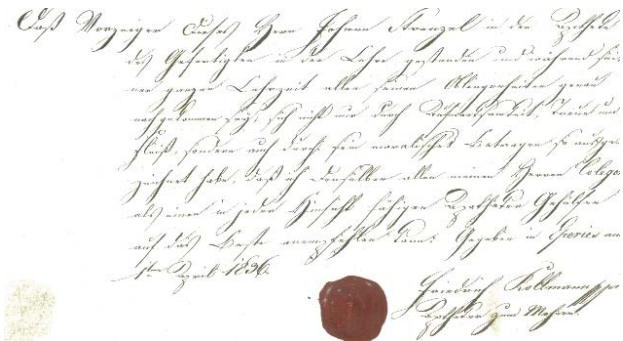 Daß Vorzeiger dieses Herr Johann Stenzel in der Apotheke
des Gefertigten in der Lehre gestanden und während sei-
ner ganzen Lehrzeit allen seinen Obliegenheiten genau
nachgekommen sey, sich nicht nur durch Treue und
Fleiß, sondern auch durch sein moralisches Betragen so ausge-
zeichnet habe, daß ich denselben allen meinen Herren Colegen
als einen in jeder Hinsicht fähigen Apotheker Gehülfen
auf das Beste anempfehlen kann. Gegeben in am
1ten April 1836.
Friedrich Kollmann
Apotheker zum Mohren.